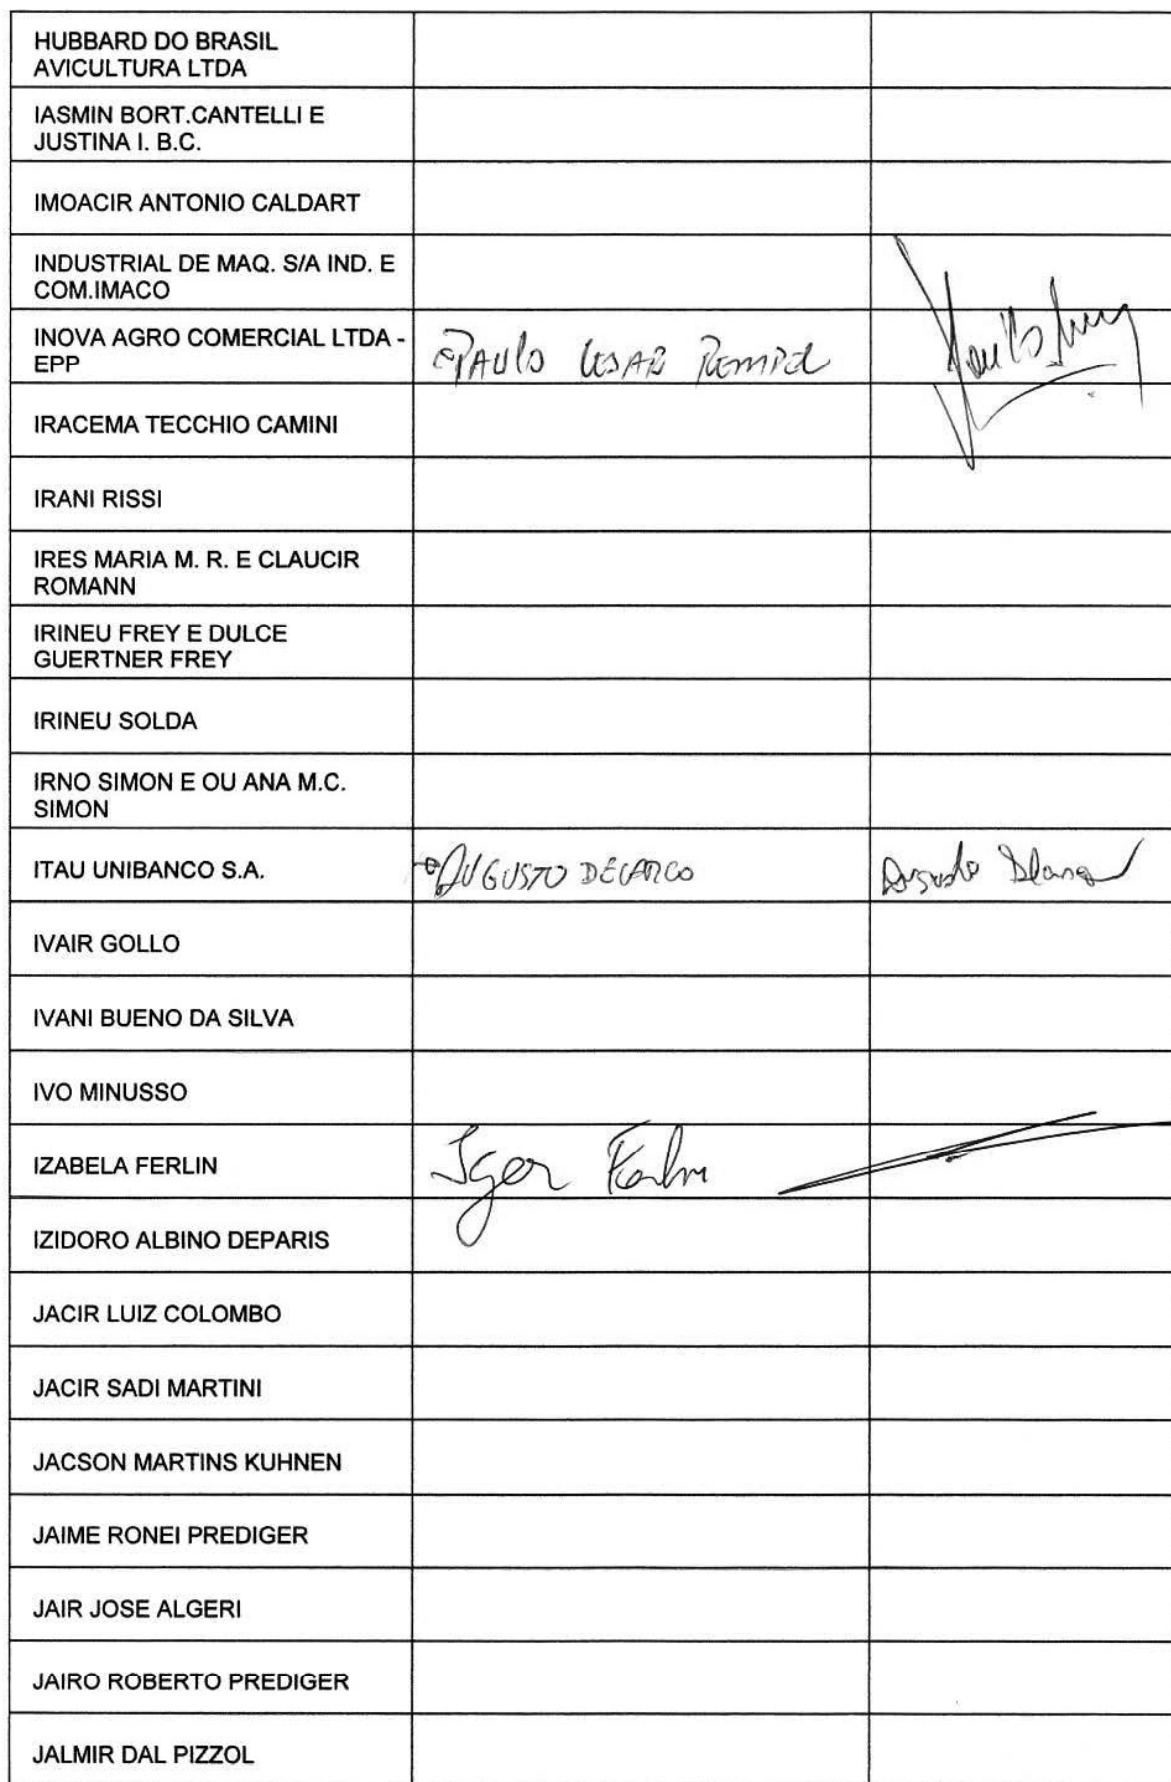 HUBBARD DO BRASIL
AVICULTURA LTDA
IASMIN BORT.CANTELLI E
JUSTINA I. B.C.
IMOACIR ANTONIO CALDART
INDUSTRIAL DE MAQ. S/A IND. E
COM.IMACO
INOVA AGRO COMERCIAL LTDA -
EPP
PAULO CESAR REMPEL
IRACEMA TECCHIO CAMINI
IRANI RISSI
IRES MARIA M. R. E CLAUCIR
ROMANN
IRINEU FREY E DULCE
GUERTNER FREY
IRINEU SOLDA
IRNO SIMON E OU ANA M.C.
SIMON
ITAU UNIBANCO S.A. AUGUSTO
IVAIR GOLLO
IVANI BUENO DA SILVA
IVO MINUSSO
IZABELA FERLIN Igor Ferlin
IZIDORO ALBINO DEPARIS
JACIR LUIZ COLOMBO
JACIR SADI MARTINI
JACSON MARTINS KUHNEN
JAIME RONEI PREDIGER
JAIR JOSE ALGERI
JAIRO ROBERTO PREDIGER
JALMIR DAL PIZZOL